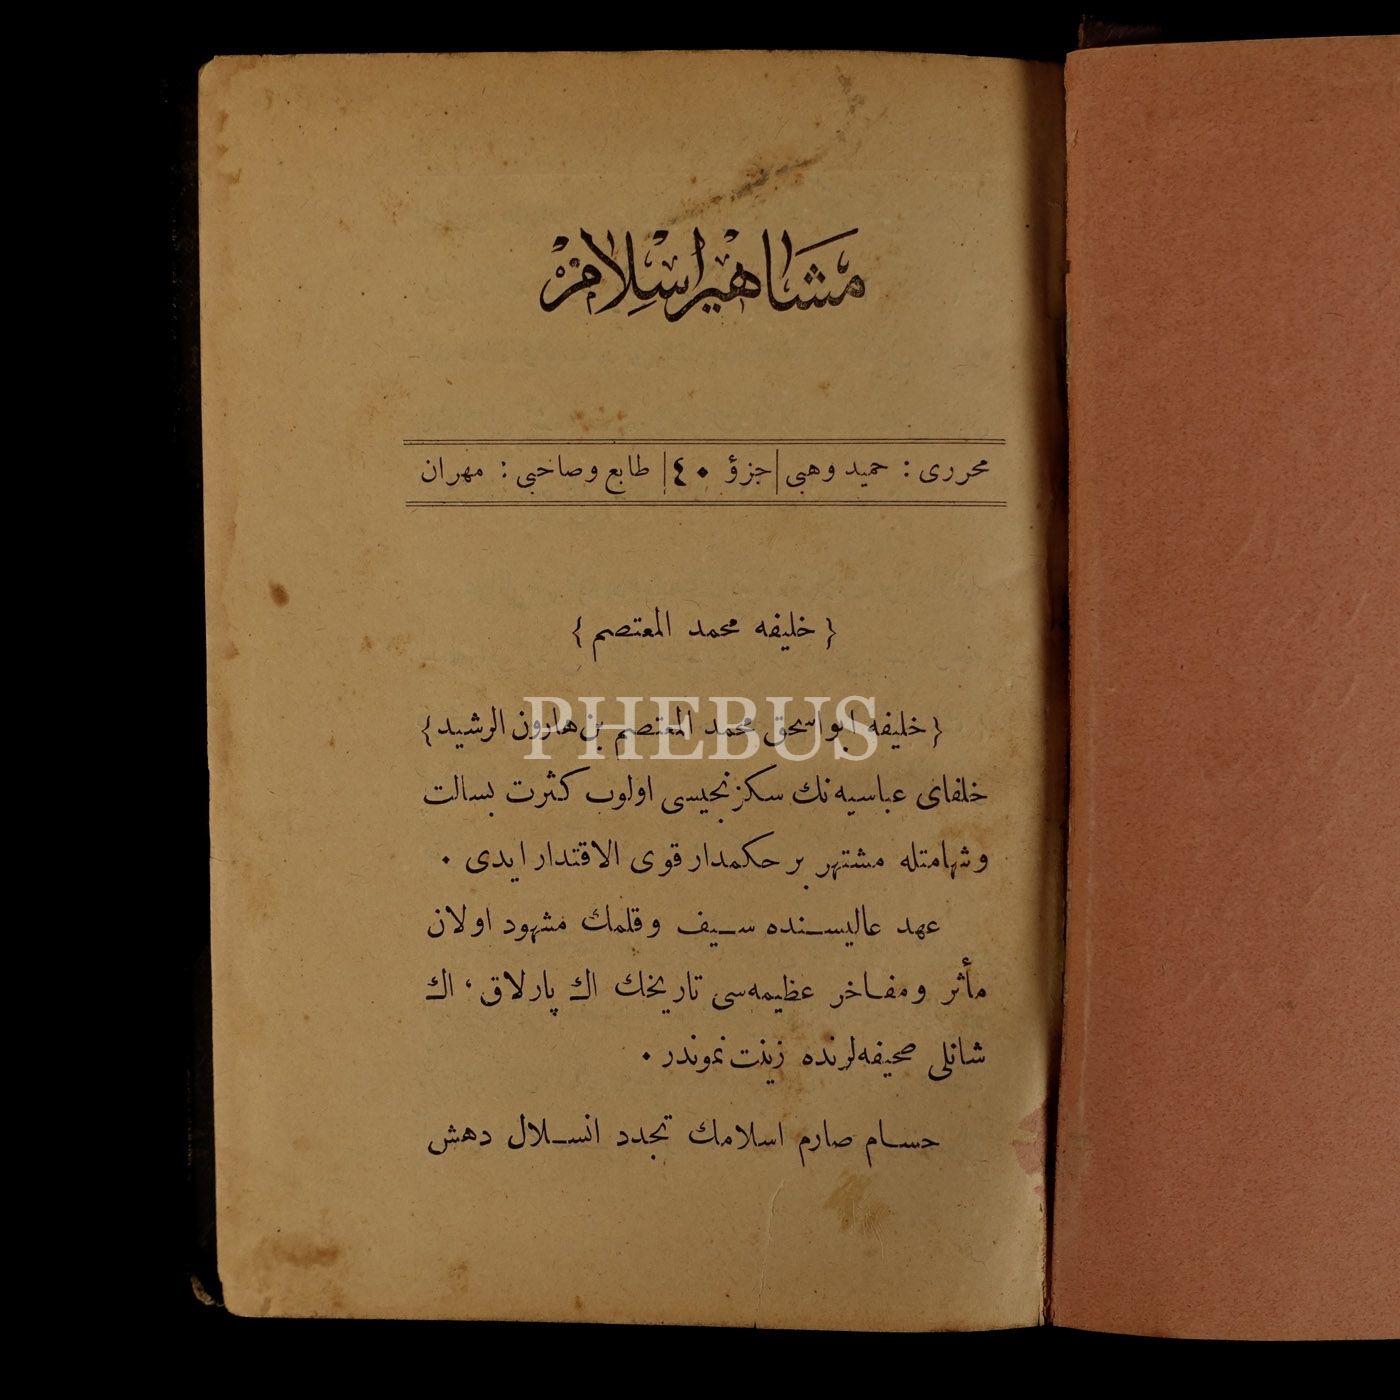 مشاهير اسلام
محررى : حميد وهبى | جزؤ ٤٠ | طابع وصاحبى : مهران
{ خليفه محمد المعتصم }
{ خليفه ابو اسحق محمد المعتصم بن هارون الرشيد }
PHEBUS
خلفاى عباسيه نك سكزنجيسى اولوب كثرت بسالت
وشهامتله مشتهر بر حكمدار قوى الاقتدار ايدى ٠
عهد عاليسنده سيف وقلمك مشهود اولان
مأثر ومفاخر عظيمه سى تاريخك اك پارلاق ، اك
شانلى صحيفه لرنده زينت نموندر ٠
حسام صارم اسلامك تجدد انسلال دهش